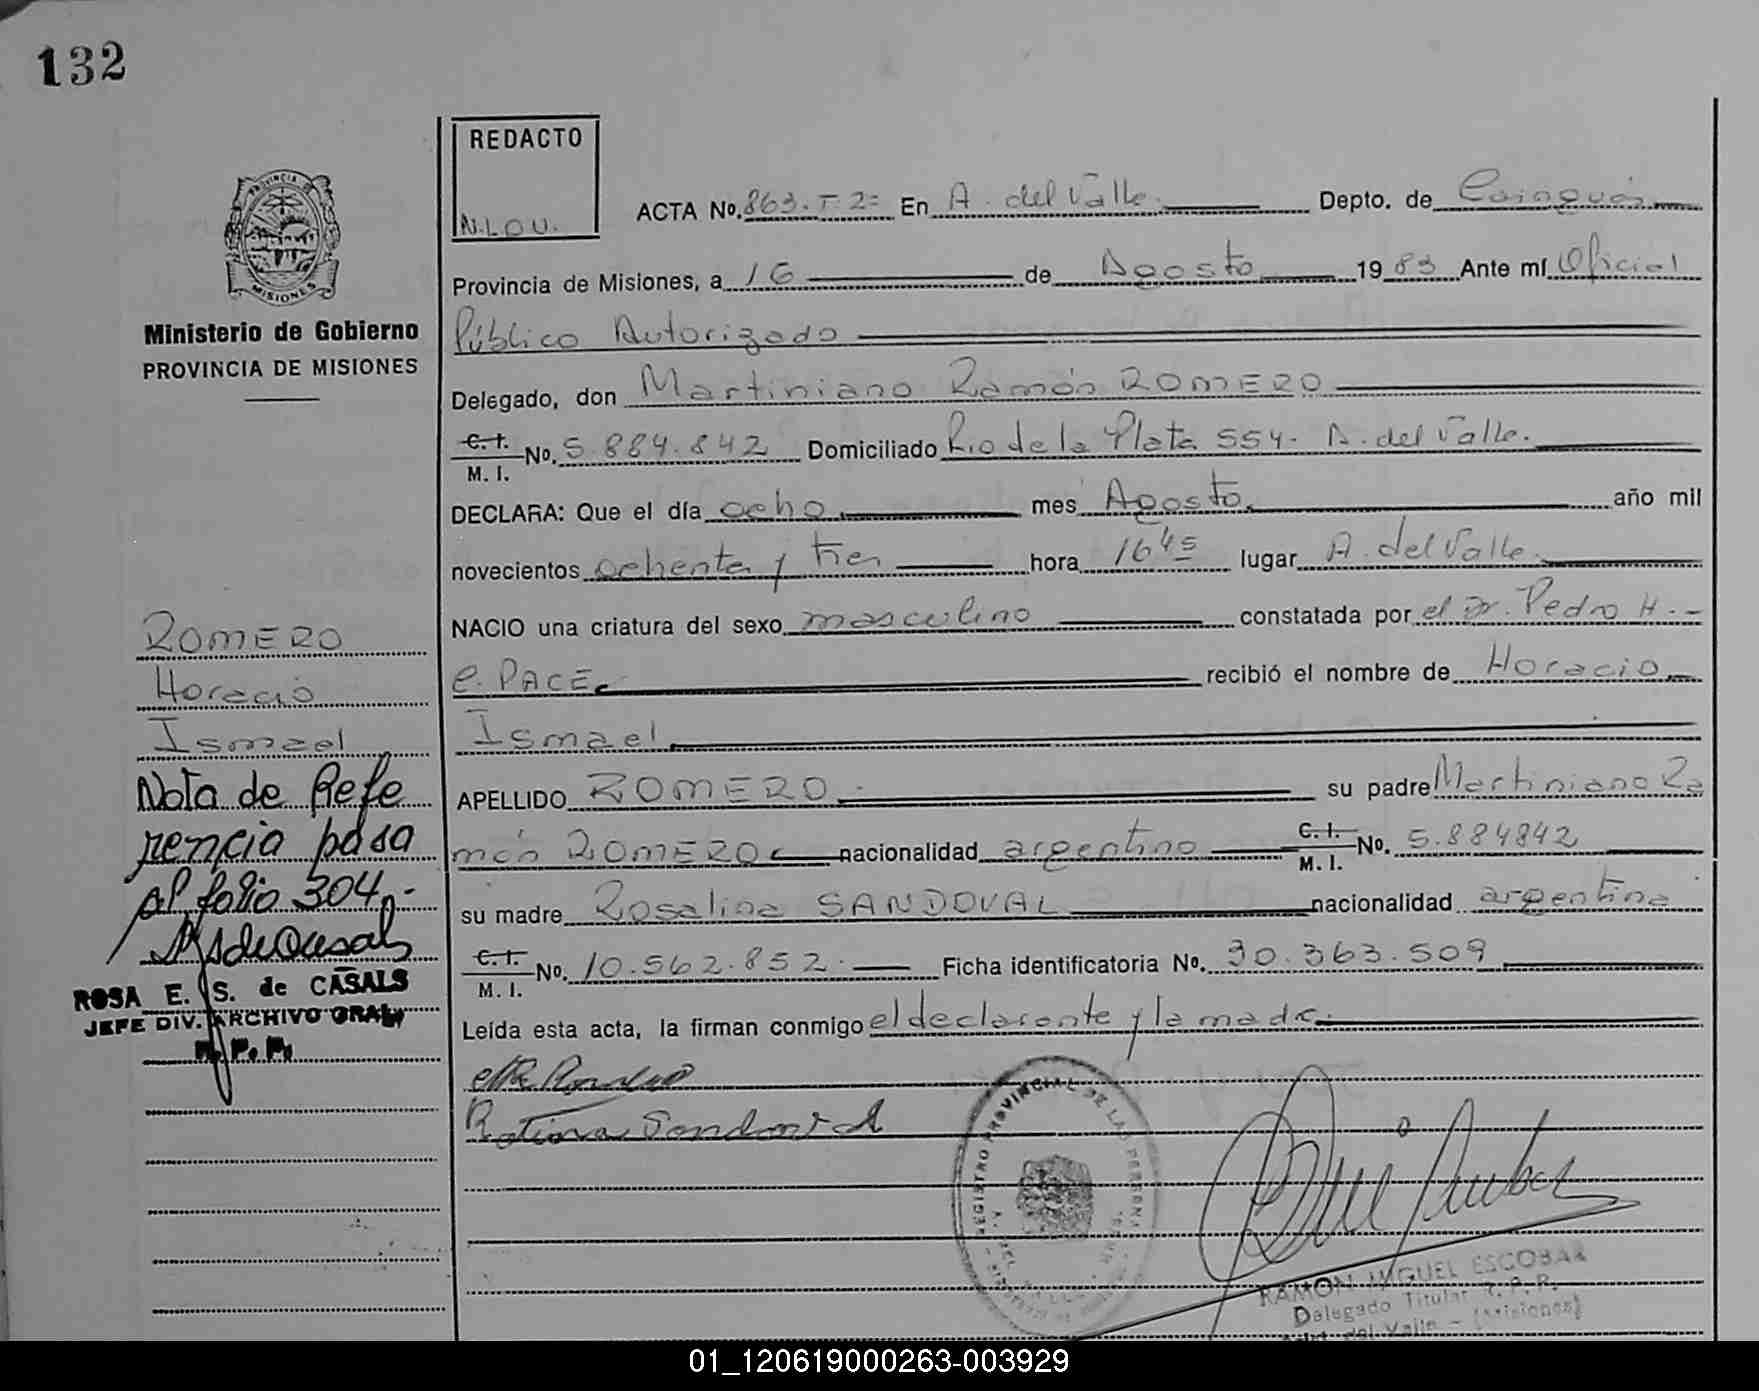 132
REDACTO
N.L.O.U.
PROVINCIA DE
MISIONES
Ministerio de Gobierno
PROVINCIA DE MISIONES
ACTA No. 863.T-2= En A. del Valle. Depto. de Cainguás
Provincia de Misiones, a 16 de Agosto 1983 Ante mí Oficial
Público Autorizado
Delegado, don Martiniano Ramón ROMERO
C. I. M. I. No. 5.884.842 Domiciliado Rio de la Plata 554- A. del Valle.
DECLARA: Que el día ocho mes Agosto año mil
novecientos ochenta y tres hora 16 45 lugar A. del Valle.
NACIO una criatura del sexo masculino constatada por el Dr. Pedro H.-
e. PACE. recibió el nombre de Horacio
Ismael
APELLIDO ROMERO su padre Martiniano Ra
món ROMERO nacionalidad argentino C. I. M. I. No. 5.884842
su madre Rosalina SANDOVAL nacionalidad argentina
C. I. M. I. No. 10.562.852. Ficha identificatoria No. 30.363.509
Leída esta acta, la firman conmigo el declarante y la madre.
ROMERO
Horacio
Ismael
Nota de Refe
rencia pasa
al folio 304.-
ROSA E. S. de CASALS
JEFE DIV. ARCHIVO GRAL.
R. P. P.
Sandoval
REGISTRO PROVINCIAL DE LAS PERSONAS
RAMON MIGUEL ESCOBAR
Delegado Titular R. P. P.
del Valle - (Misiones)
01_120619000263-003929